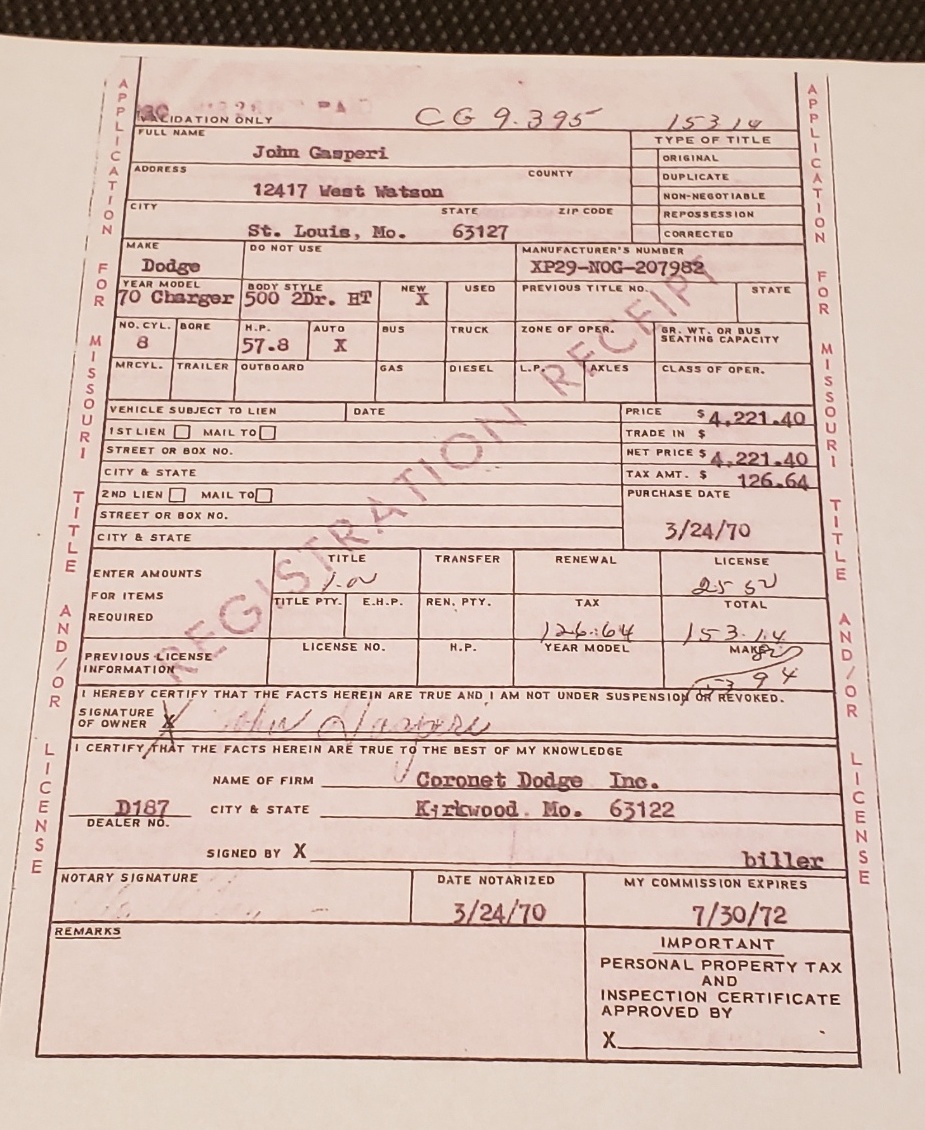 VALIDATION ONLY
CG 9.395
153 14
FULL NAME
John Gasperi
TYPE OF TITLE
ORIGINAL
ADDRESS
COUNTY
DUPLICATE
12417 West Watson
NON-NEGOTIABLE
CITY
STATE
ZIP CODE
REPOSSESSION
St. Louis, Mo. 63127
CORRECTED
MAKE
DO NOT USE
MANUFACTURER'S NUMBER
Dodge
XP29-NOG-207982
YEAR MODEL
BODY STYLE
NEW
USED
PREVIOUS TITLE NO.
STATE
70 Charger
500 2Dr. HT
X
NO. CYL.
BORE
H.P.
AUTO
BUS
TRUCK
ZONE OF OPER.
GR. WT. OR BUS
SEATING CAPACITY
8
57.8
X
MRCYL.
TRAILER
OUTBOARD
GAS
DIESEL
L.P.
AXLES
CLASS OF OPER.
VEHICLE SUBJECT TO LIEN
DATE
PRICE $ 4,221.40
1ST LIEN
MAIL TO
TRADE IN $
STREET OR BOX NO.
NET PRICE $ 4,221.40
CITY & STATE
TAX AMT. $ 126.64
2ND LIEN
MAIL TO
PURCHASE DATE
STREET OR BOX NO.
3/24/70
CITY & STATE
REGISTRATION RECEIPT
ENTER AMOUNTS
FOR ITEMS
REQUIRED
TITLE
TRANSFER
RENEWAL
LICENSE
1.00
25 50
TITLE PTY.
E.H.P.
REN. PTY.
TAX
TOTAL
126.64
153.14
PREVIOUS LICENSE
INFORMATION
LICENSE NO.
H.P.
YEAR MODEL
MAKE
94
I HEREBY CERTIFY THAT THE FACTS HEREIN ARE TRUE AND I AM NOT UNDER SUSPENSION OR REVOKED.
SIGNATURE
OF OWNER X John Gasperi
I CERTIFY THAT THE FACTS HEREIN ARE TRUE TO THE BEST OF MY KNOWLEDGE
NAME OF FIRM Coronet Dodge Inc.
D187
CITY & STATE Kirkwood. Mo. 63122
DEALER NO.
SIGNED BY X biller
NOTARY SIGNATURE
DATE NOTARIZED
MY COMMISSION EXPIRES
3/24/70
7/30/72
REMARKS
IMPORTANT
PERSONAL PROPERTY TAX
AND
INSPECTION CERTIFICATE
APPROVED BY
X
APPLICATION FOR MISSOURI TITLE AND/OR LICENSE
APPLICATION FOR MISSOURI TITLE AND/OR LICENSE